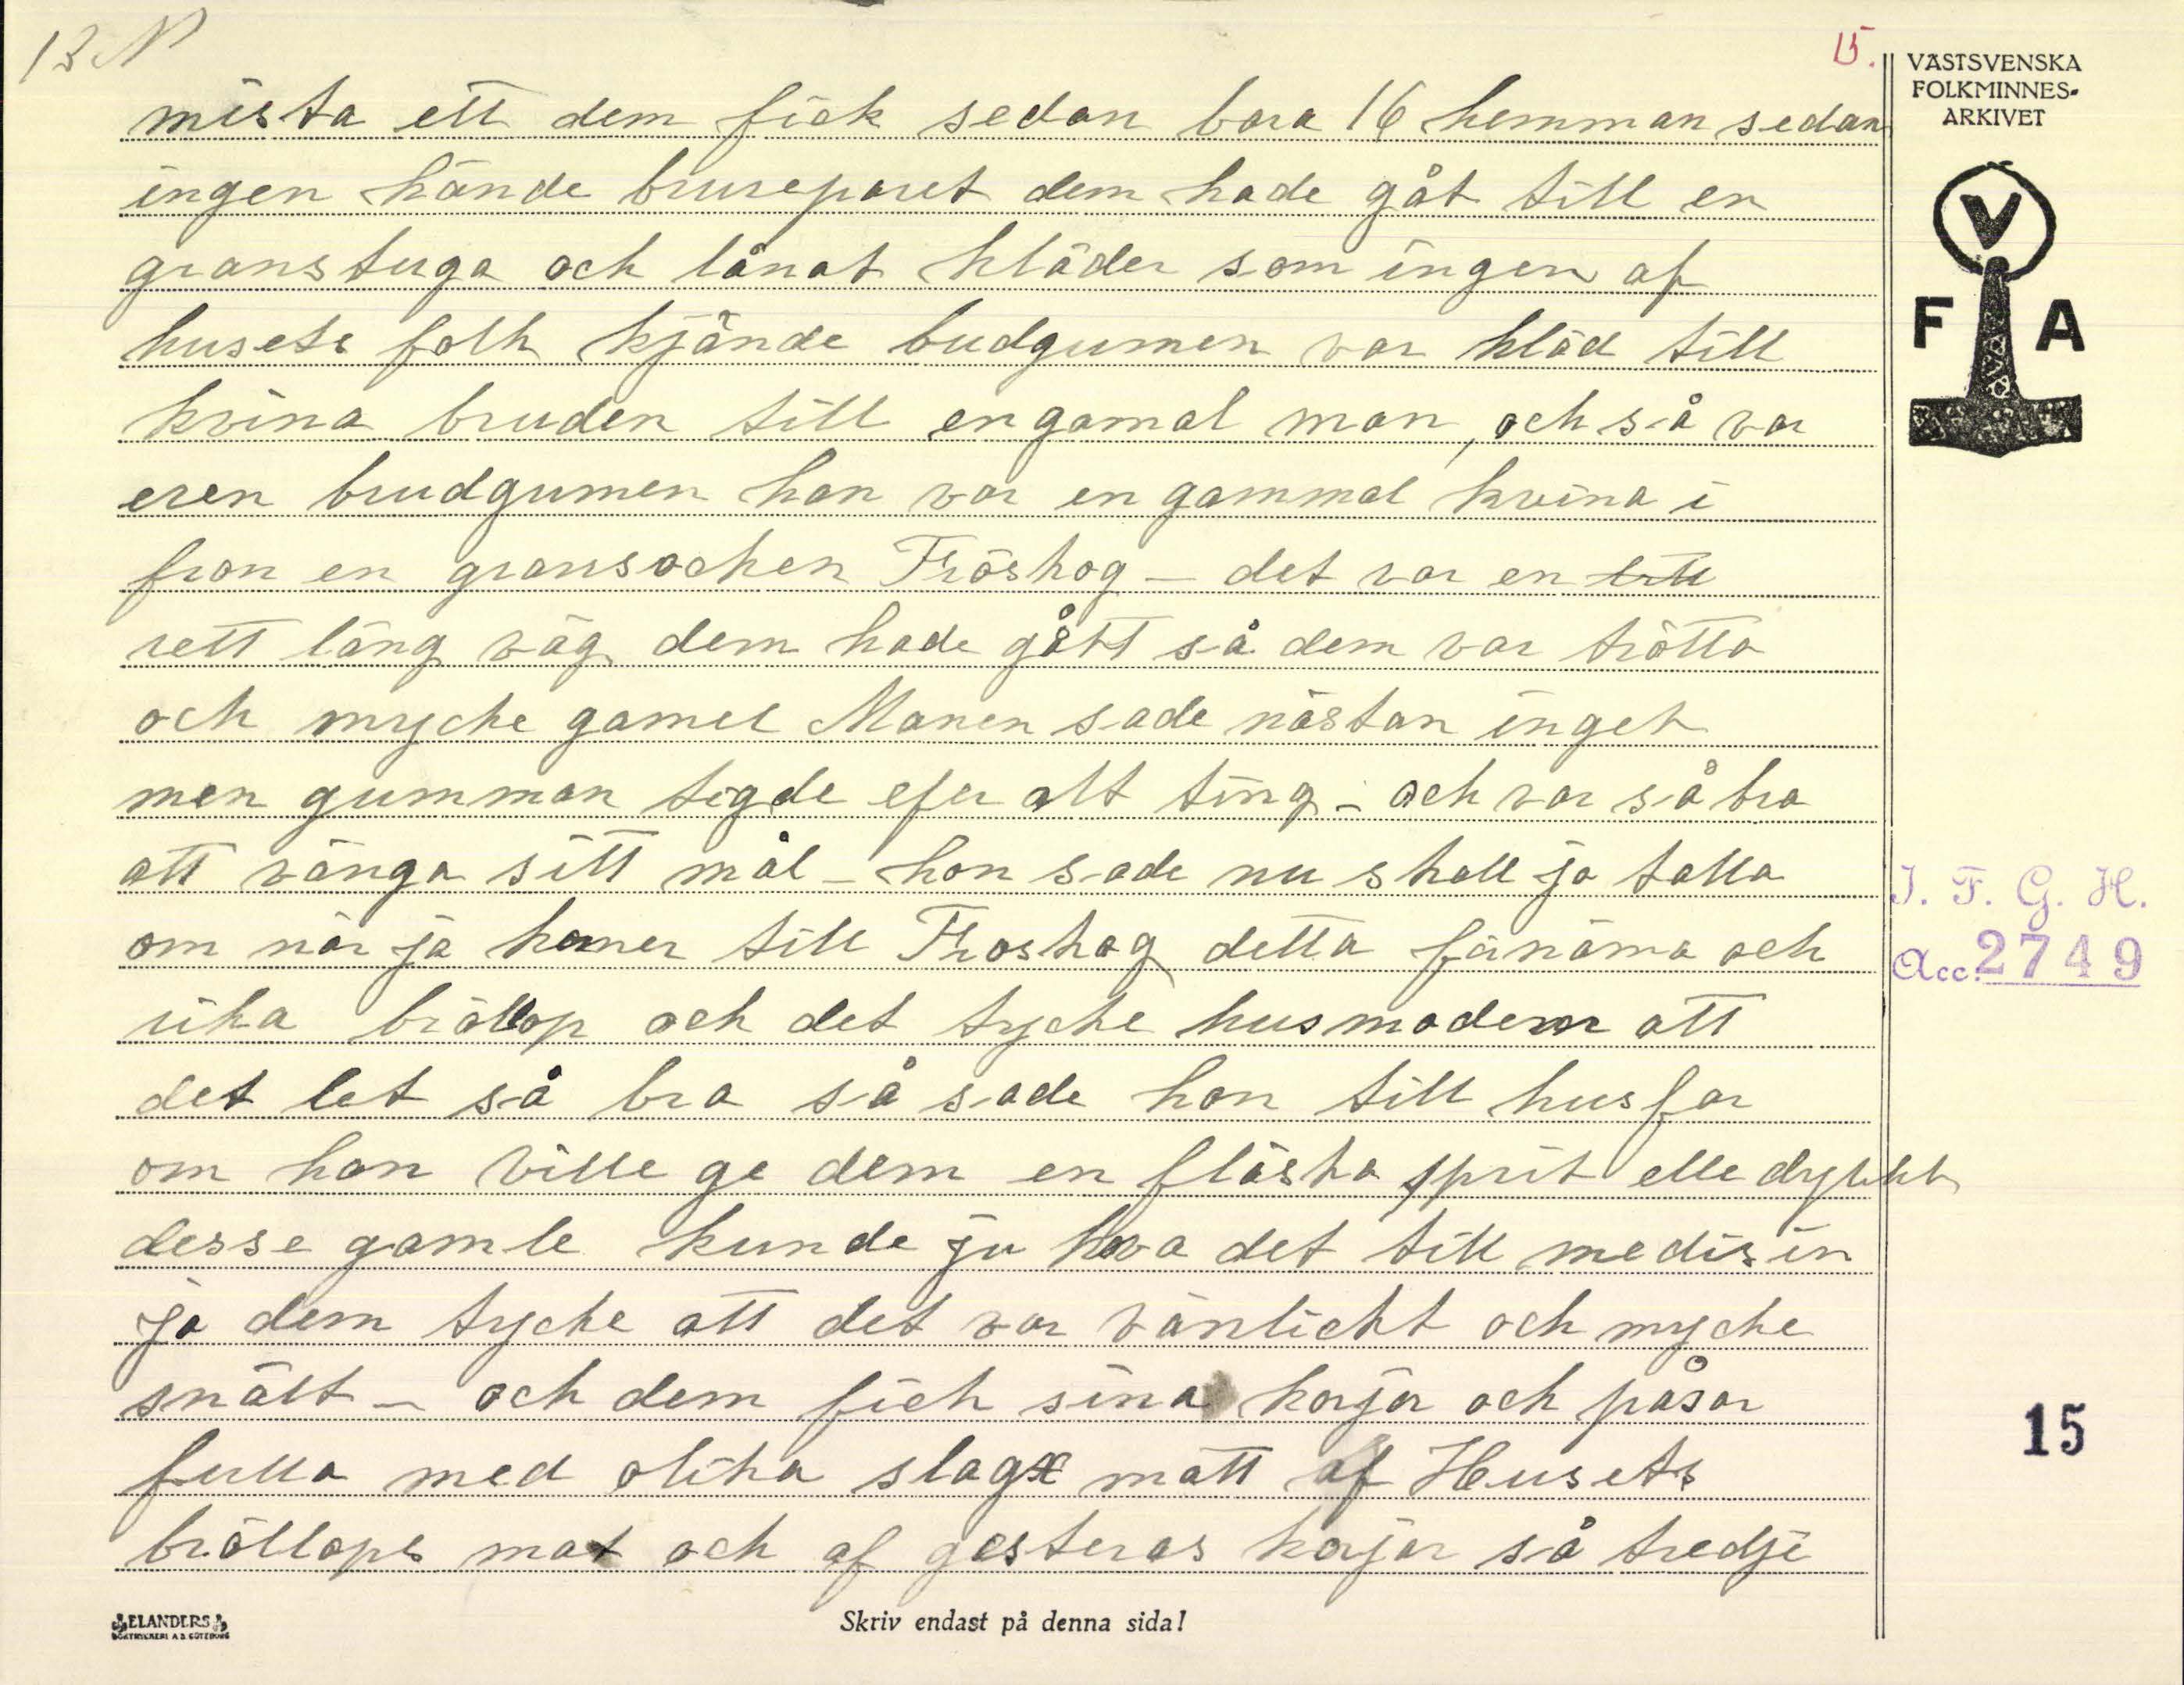 13 N
15.
VÄSTSVENSKA
FOLKMINNES-
ARKIVET
V
F A
mista ett dem fick sedan bara 16 hemman sedan
ingen kände brureparet dem hade gåt till en
granstuga och lånat kläder som ingen af
husets folk kjände budgumen var kläd till
kvina bruden till en gamal man, och så var
eren brudgumen han var en gammal kvina i
fron en gransochen Fröskog – det var en
rett läng väg dem hade gått så dem var trötta
och myche gamel Manen sade nästan inget
men gumman tigde efer alt ting – och var så bra
att vänga sitt mål – hon sade nu skall ja talla
om när ja komer till Froskog detta fänäma och
rika bröllop och det tyche husmodern att
det let så bra så sade hon till husfar
om han ville ge dem en fläska sprit elle dryckt
desse gamle kunde ju hava det till medisin
ja dem tyche att det var vänlicht och myche
snält – och dem fick sina korjar och påsar
fulla med olika slags matt af Husets
bröllops mat och af gesteras korjar så tredje
I. F. G. H.
Acc. 2749
15
ELANDERS
BOKTRYCKERI A.B. GÖTEBORG
Skriv endast på denna sida!